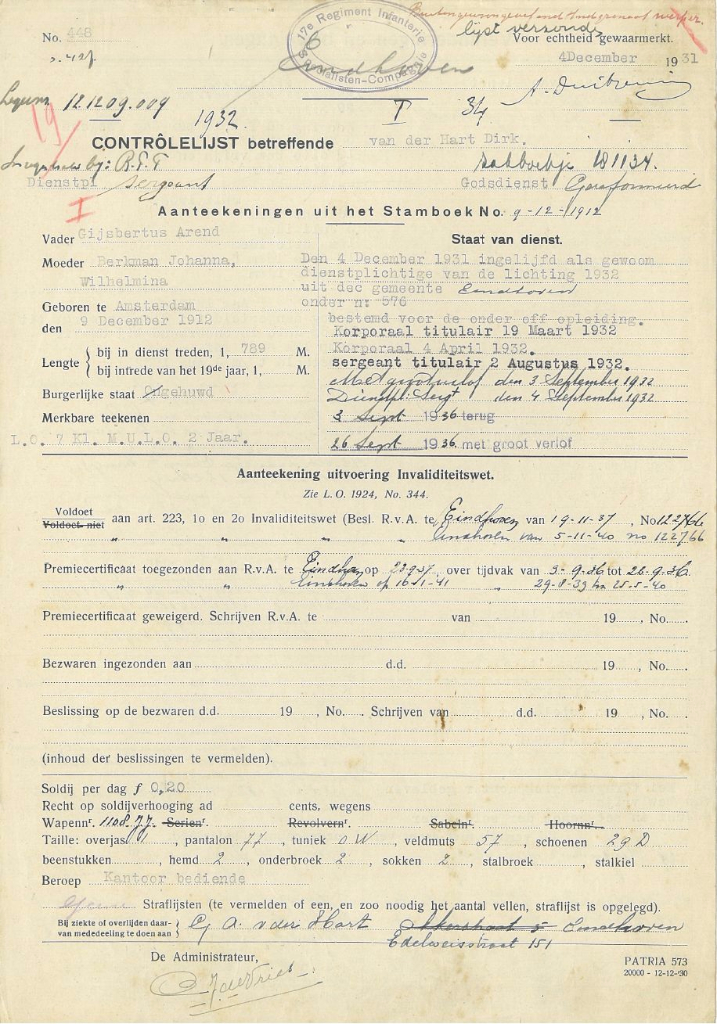 No. 448
lijst verzonden
17e Regiment Infanterie
Specialisten-Compagnie
6
Eindhoven
Voor echtheid gewaarmerkt.
4December 1931
Legernr 12.12.09.009
1932
T 34
19
CONTRÔLELIJST betreffende van der Hart Dirk.
zakboekje 181134.
Dienstpl sergeant
Godsdienst Gereformeerd
I
Aanteekeningen uit het Stamboek No. 9-12-1912
Vader Gijsbertus Arend
Staat van dienst.
Moeder Berkman Johanna,
Wilhelmina
Den 4 December 1931 ingelijfd als gewoom
dienstplichtige van de lichting 1932
uit dec gemeente Eindhoven
onder n: 576
Geboren te Amsterdam
den 9 December 1912
bestemd voor de onder off opleiding.
Korporaal titulair 19 Maart 1932
Korporaal 4 April 1932.
sergeant titulair 2 Augustus 1932.
Met grootverlof den 3 September 1932
Dienstpl. Sergt den 4 September 1932
3 Sept 1936 terug
26 Sept 1936 met groot verlof
Lengte
bij in dienst treden, 1, 789 M.
bij intrede van het 19de jaar, 1, M.
Burgerlijke staat Ongehuwd
Merkbare teekenen
L.O. 7 Kl. M.U.L.O. 2 Jaar.
Aanteekening uitvoering Invaliditeitswet.
Zie L.O. 1924, No. 344.
Voldoet
Voldoet niet
aan art. 223, 1o en 2o Invaliditeitswet (Besl. R.v.A. te Eindhoven van 19-11-37, No 122766
" " " " Eindhoven van 5-11-40 no 122766
Premiecertificaat toegezonden aan R.v.A. te Eindhoven op 23-9-37, over tijdvak van 3-9-36 tot 26-9-36
" " Eindhoven op 16-1-41 " 29-8-39 tm 25-5-40
Premiecertificaat geweigerd. Schrijven R.v.A. te van 19 , No.
Bezwaren ingezonden aan d.d. 19 , No.
Beslissing op de bezwaren d.d. 19 , No. Schrijven van d.d. 19 , No.
(inhoud der beslissingen te vermelden).
Soldij per dag f 0,20
Recht op soldijverhooging ad cents, wegens
Wapennr. 1108.77. Serienr. Revolvernr. Sabelnr. Hoornnr.
Taille: overjas 1, pantalon 77, tuniek 0 W, veldmuts 57, schoenen 29 D
beenstukken , hemd 2, onderbroek 2, sokken 2, stalbroek , stalkiel
Beroep Kantoor bediende
Straflijsten (te vermelden of een, en zoo noodig het aantal vellen, straflijst is opgelegd).
Bij ziekte of overlijden daar-
van mededeeling te doen aan
G. A. v der Hart Eindhoven
Edelweisstraat 151
De Administrateur,
J. de Vries
PATRIA 573
20000 - 12-12-'30